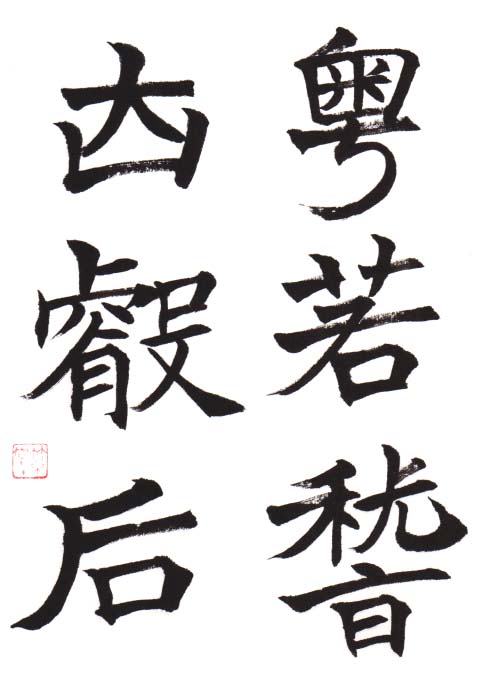 粤若稽
古叡后